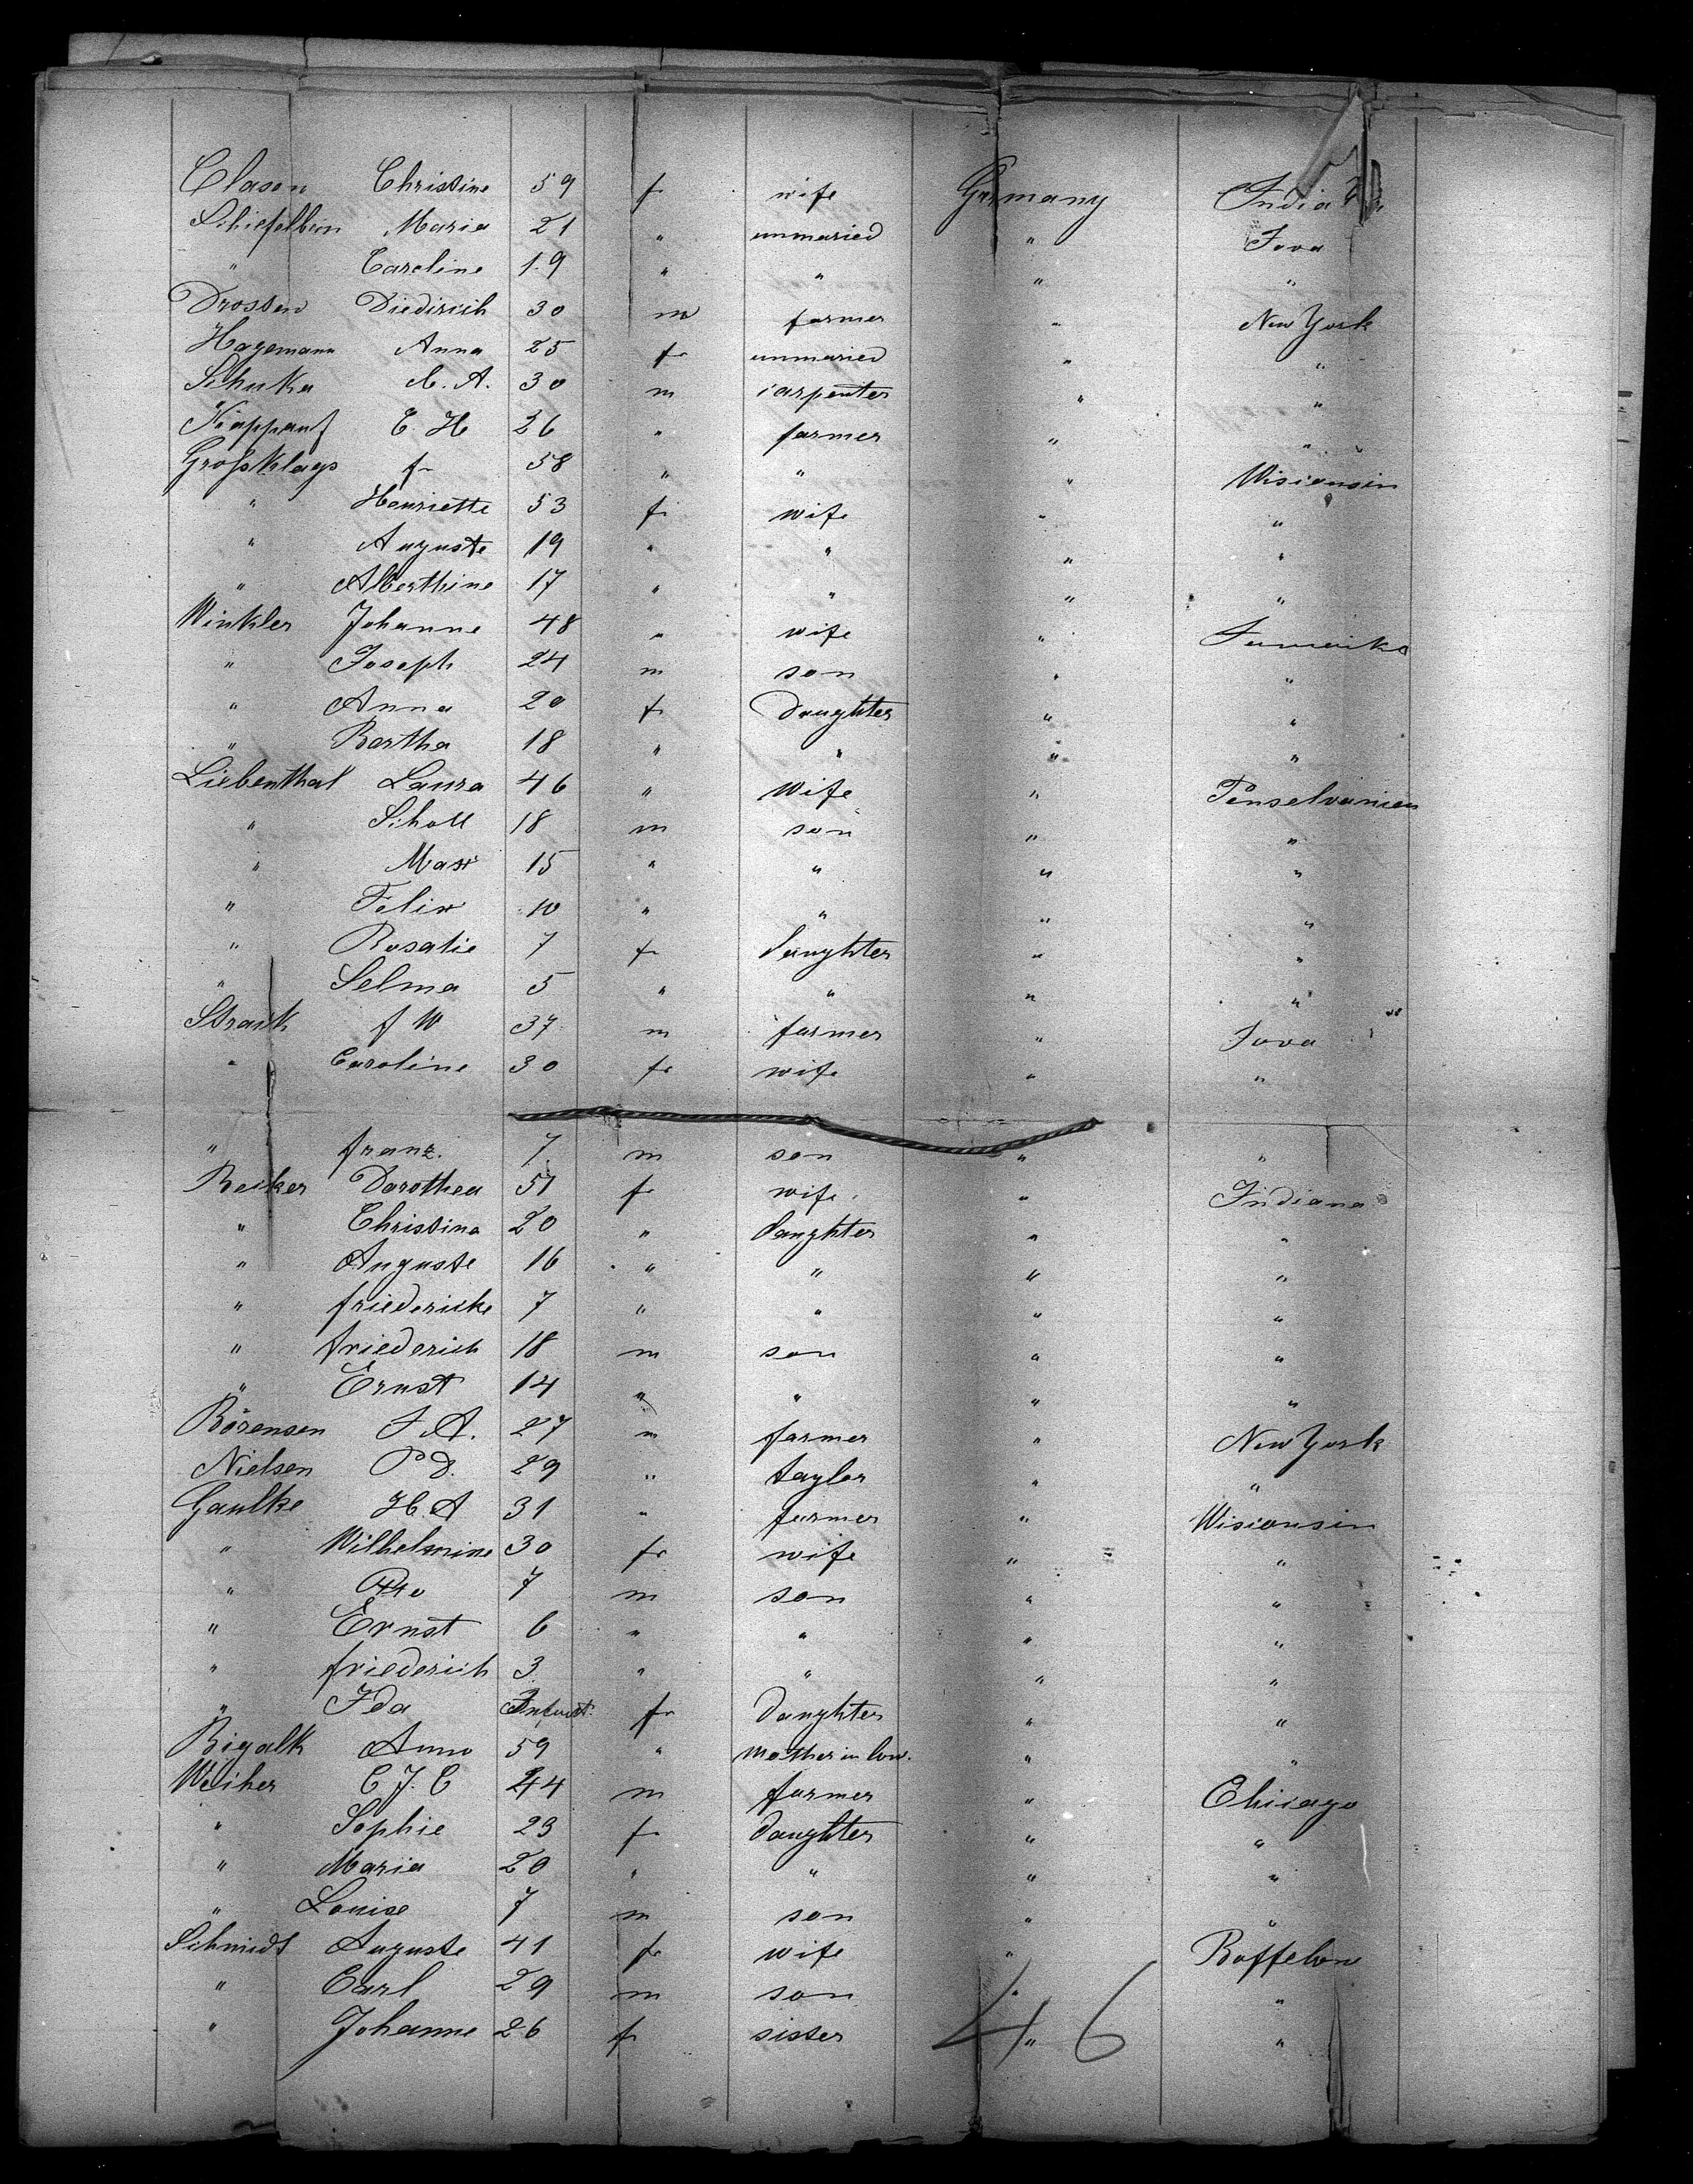 Clasen Christine 59 f wife Germany India
Schiefelbein Maria 21 " unmaried " Iova
" Caroline 19 " " " "
Drossen Diedirich 30 m farmer " New York
Hagemann Anna 25 f unmaried " "
Schuka C. A. 30 m carpenter " "
E. H 26 " farmer " "
Großklags fr 58 " " " Wisconsin
" Henriette 53 f wife " "
" Auguste 19 " " " "
" Alberthine 17 " " " "
Winkler Johanne 48 " wife "
" Joseph 24 m son " "
" Anna 20 f Daughter " "
" Bertha 18 " " " "
Liebenthal Laura 46 " Wife " Penselvanien
" Scholl 18 m son " "
" Max 15 " " " "
" Felix 10 " " " "
" Rosalie 7 f daughter " "
" Selma 5 " " " "
Strauk f W 37 m farmer " Iova
" Caroline 30 f wife " "
" franz. 7 m son " "
Becker Dorothea 51 f wife " Indiana
" Christina 20 " daughter " "
" Auguste 16 " " " "
" friedericke 7 " " " "
" friederich 18 m son " "
" Ernst 14 " " " "
Börensen J. A. 27 m farmer " New York
Nielsen P D. 29 " taylor " "
Gaulke H. A 31 " farmer " Wisconsin
" Wilhelmine 30 f wife " "
" Otto 7 m son " "
" Ernst 6 " " " "
" friederich 3 " " " "
" Ida Infant. f Daughter " "
Bigalk Anna 59 " mother in law. " "
Weiher C J. C 44 m farmer " Chicago
" Sophie 23 f daughter " "
" Maria 20 " " " "
" Louise 7 m son " "
Schmidt Auguste 41 f wife " Boffelow
" Carl 29 m son " "
" Johanne 26 f sister " "
46